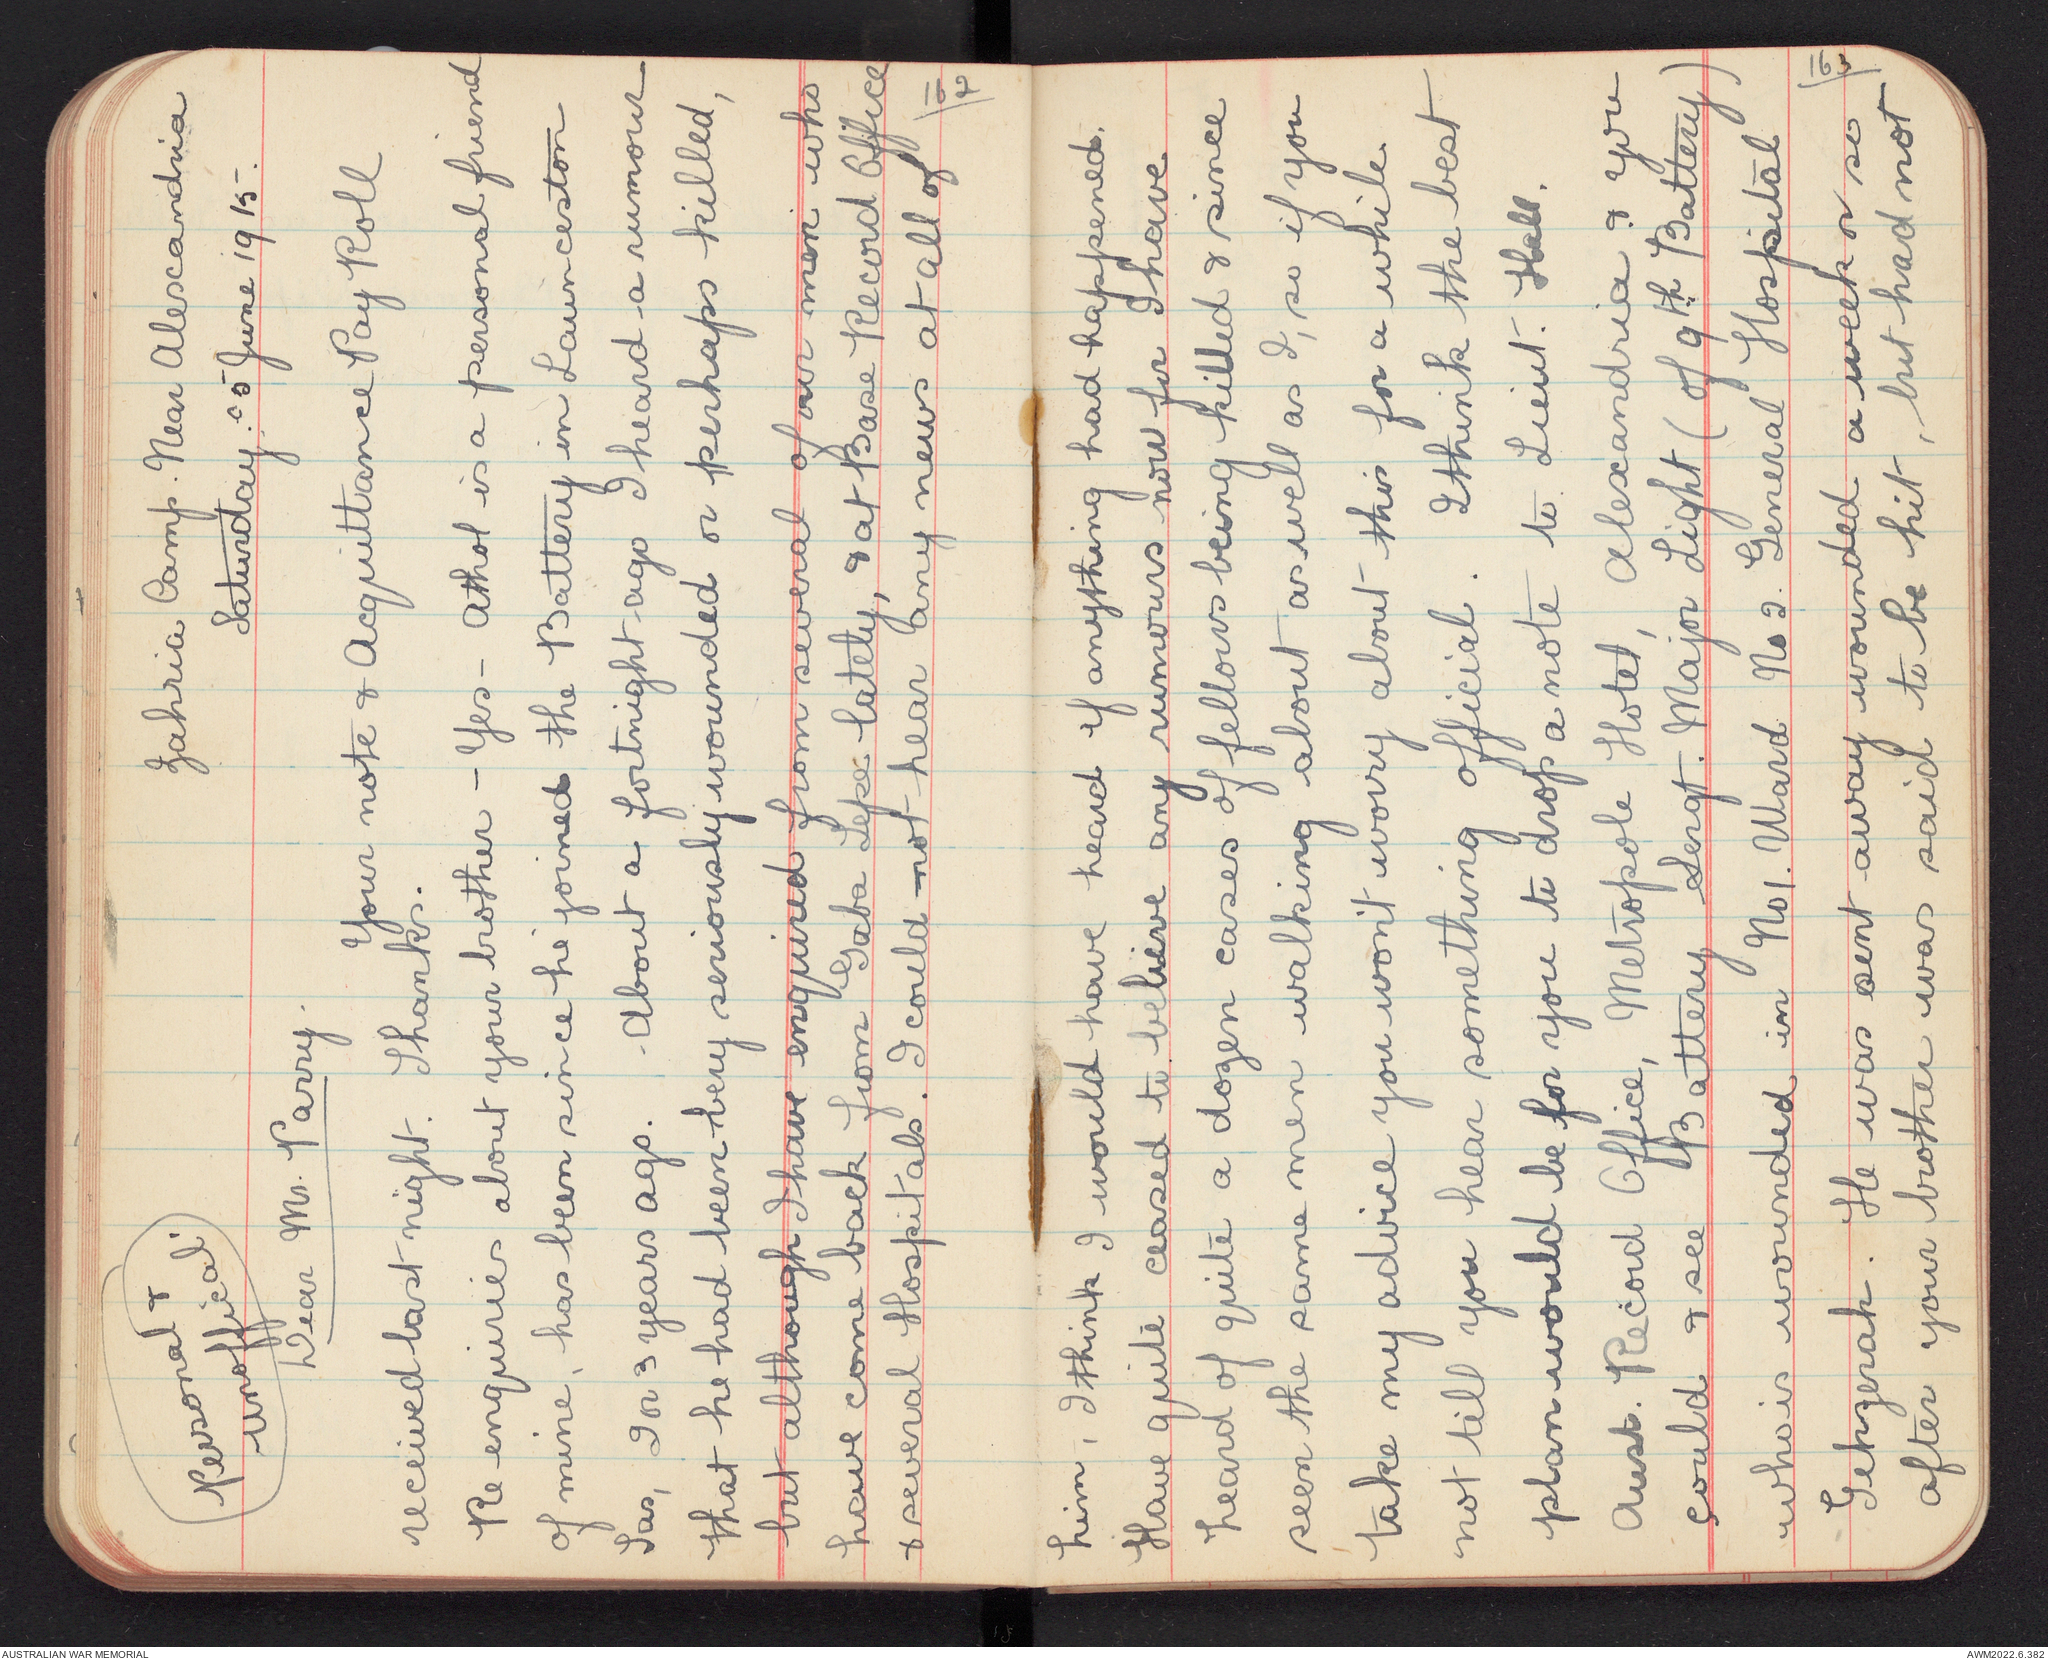 Personal &
unofficial.
Zahria Camp. Near Alexandria
Saturday. 5 June 1915.
Dear Mr. Parry.
Your note & Acquittance Pay Roll
received last night. Thanks.
Re enquiries about your brother - Yes - Athol is a personal friend
of mine, has been since he joined the Battery in Launceston
Tas, 2 or 3 years ago. - About a fortnight ago I heard a rumour
that he had been very seriously wounded or perhaps killed,
but although I have enquired from several of our men who
have come back from Gaba Tepe lately, & at Base Record Office
& several Hospitals. I could not hear any news at all of
him, I think I would have heard if anything had happened.
Have quite ceased to believe any rumours now for I have
heard of quite a dozen cases of fellows being killed & since
seen the same men walking about as well as I, so if you
take my advice you won't worry about this for a while
not till you hear something official. I think the best
plan would be for you to drop a note to Lieut. Hall.
Aust. Record Office, Metropole Hotel, Alexandria & you
could & see Battery Sergt. Major Light (of 9th Battery)
who is wounded in No 1. Ward No 2. General Hospital
Gehzerah. He was sent away wounded a week or so
after your brother was said to be hit, but had not
AUSTRALIAN WAR MEMORIAL
AWM2022.6.382